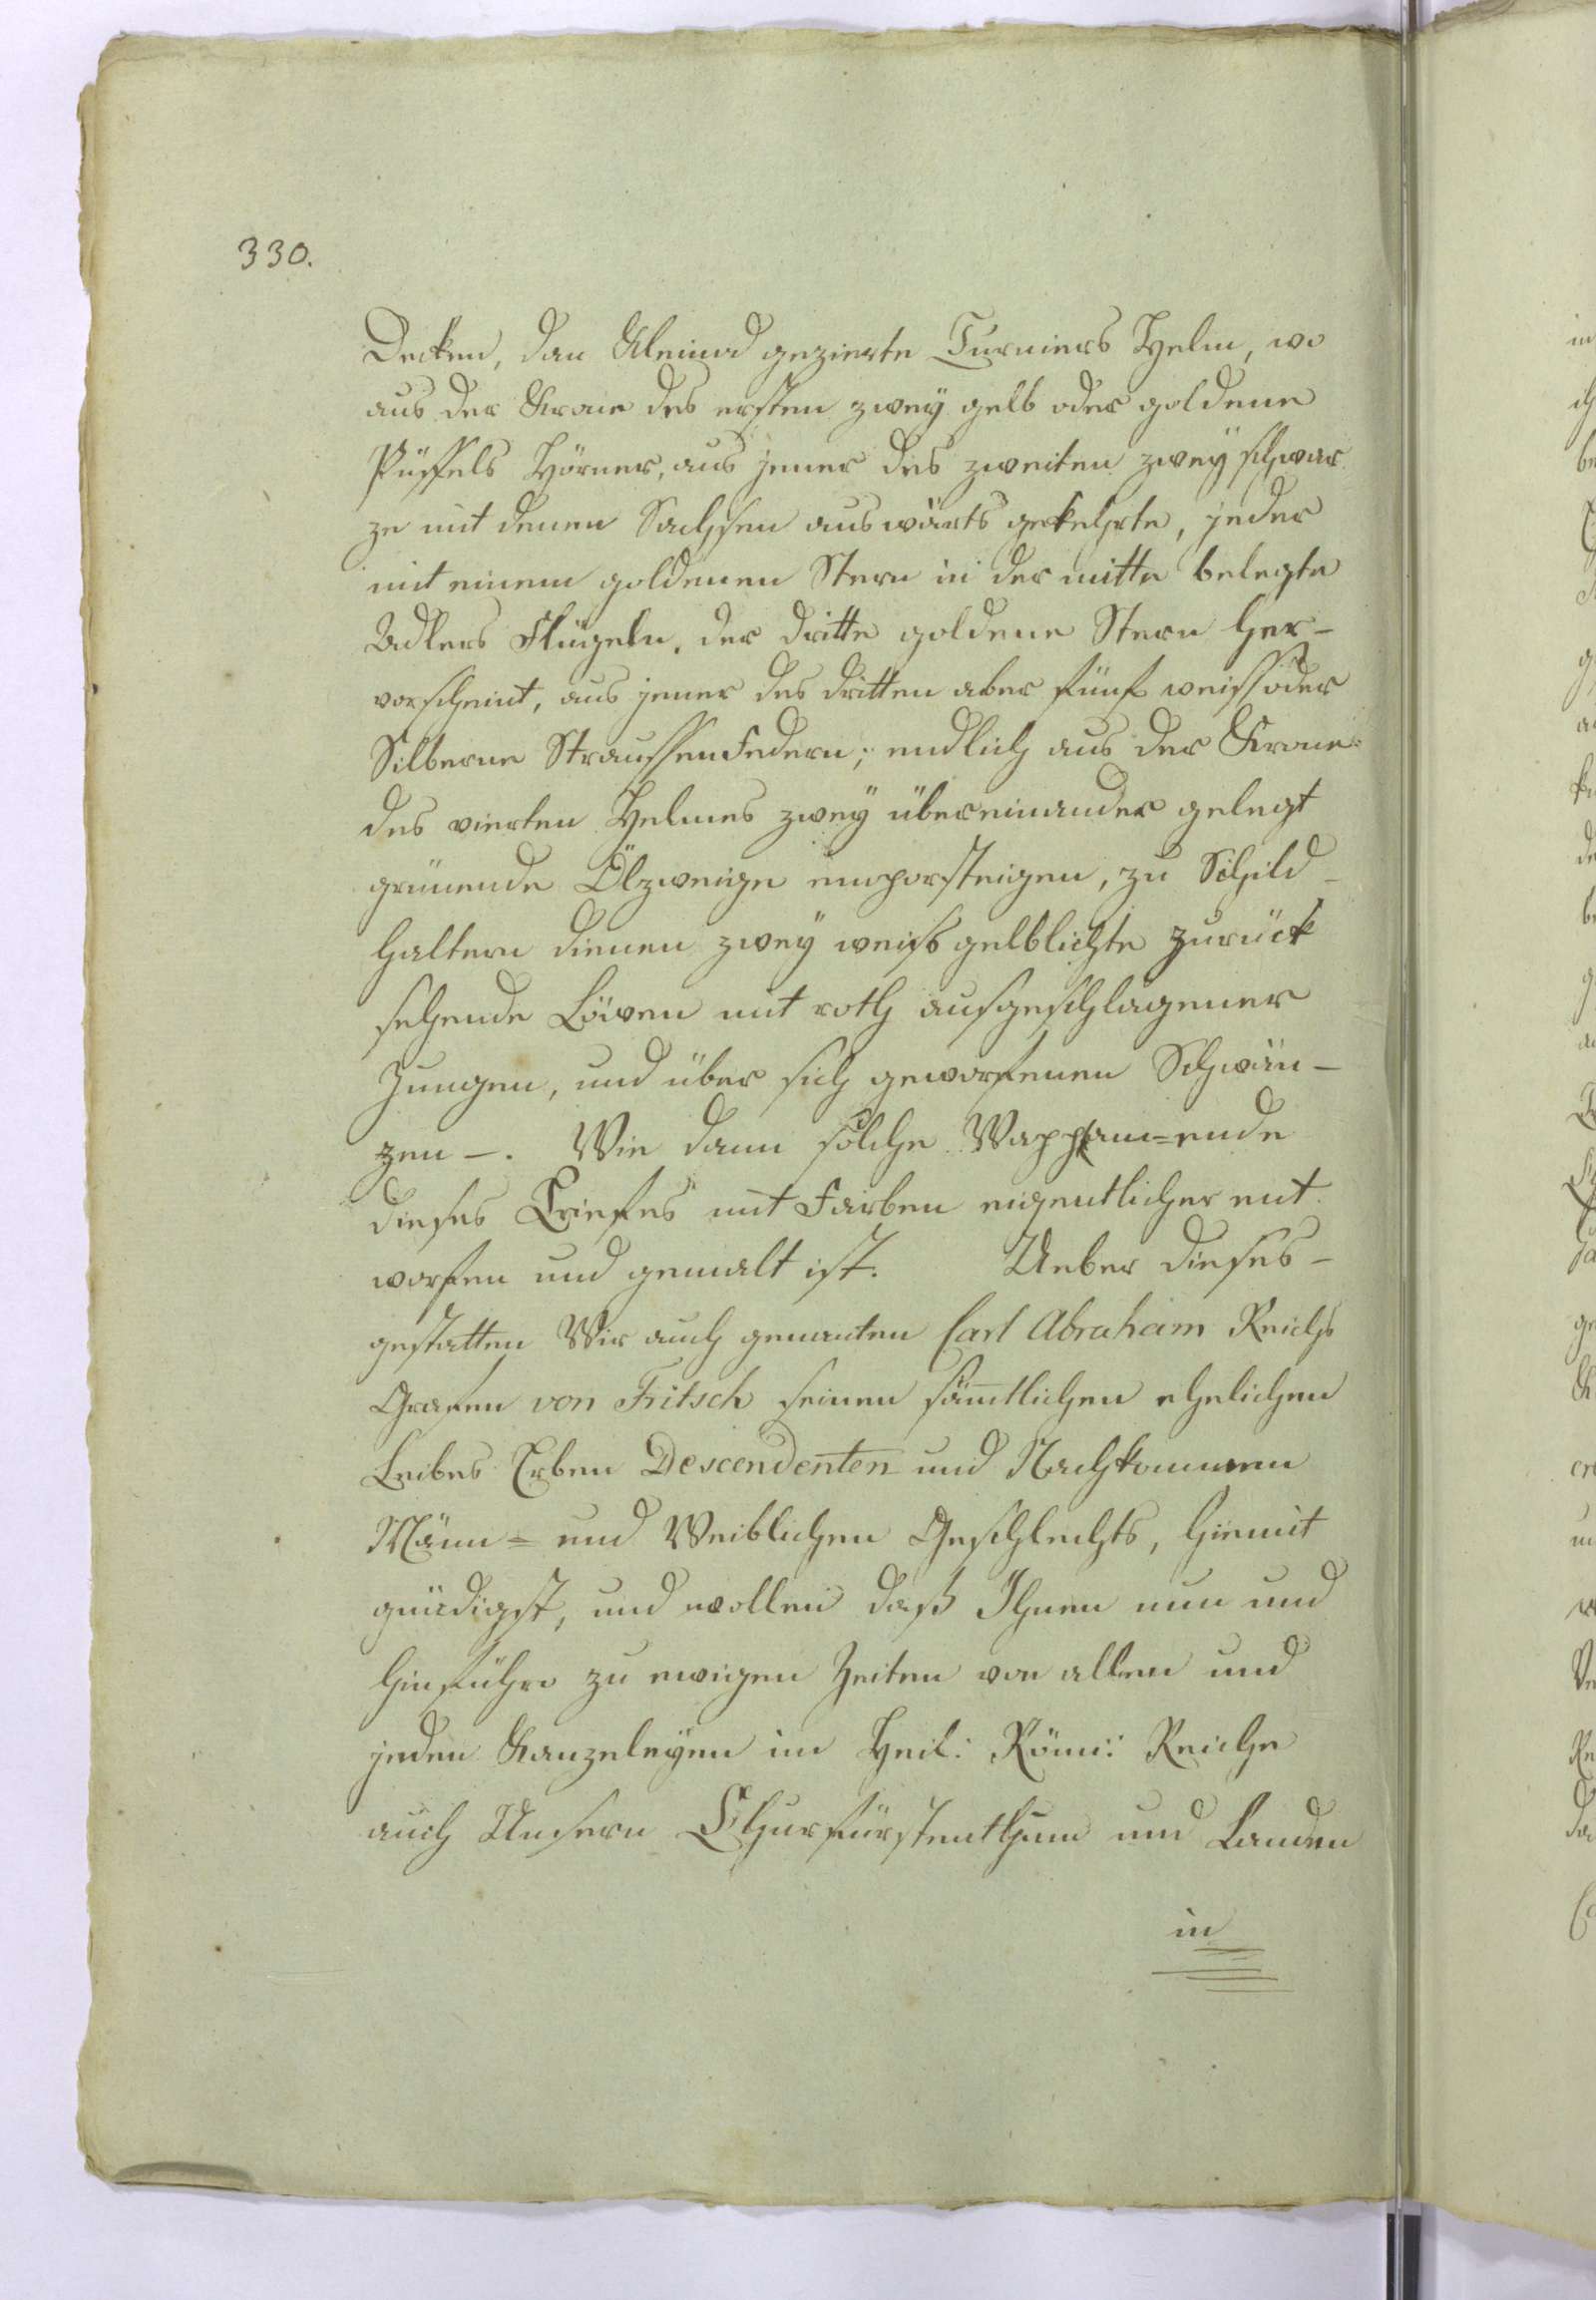 330.
Decken, dan Kleinod gezierte Turniers Helm, wo
aus der Krone des ersten zwey gelb oder goldene
Püffels Hörner, aus jener des zweiten zwey schwar
ze mit denen Sachsen auswärts gekehrte, jeder
mit einem goldenen Stern in der mitte belegte
Adlers Flügeln, der dritte goldene Stern her-
vorscheint, aus jener des dritten aber fünf weiss oder
Silberne Straussenfedern; endlich aus der Krone
des vierten Helmes zwey übereinander gelegt
grünende Ölzweige emporsteigen, zu Schild-
haltern dienen zwey weiß gelblichte zurück
sehende Löwen mit roth ausgeschlagener
Zungen, und über sich geworfenen Schwän-
zen -. Wie dann solche ende
dieses Briefes mit Farben eigentlicher ent
worfen und gemalt ist. Ueber dieses-
gestatten Wir auch genanten Carl Abraham Reichs
Grafen von Fritsch seinen sämtlichen ehelichen
Leibes Erben Descendenten und Nachkommen
Männ= und Weiblichen Geschlechts, hiemit
gnädigst, und wollen daß Ihnen nun und
hinführo zu ewigen Zeiten von allen und
jeden Kanzeleyen im Heil: Röm: Reiche
auch Unsern Churfürstenthum und Landen
in